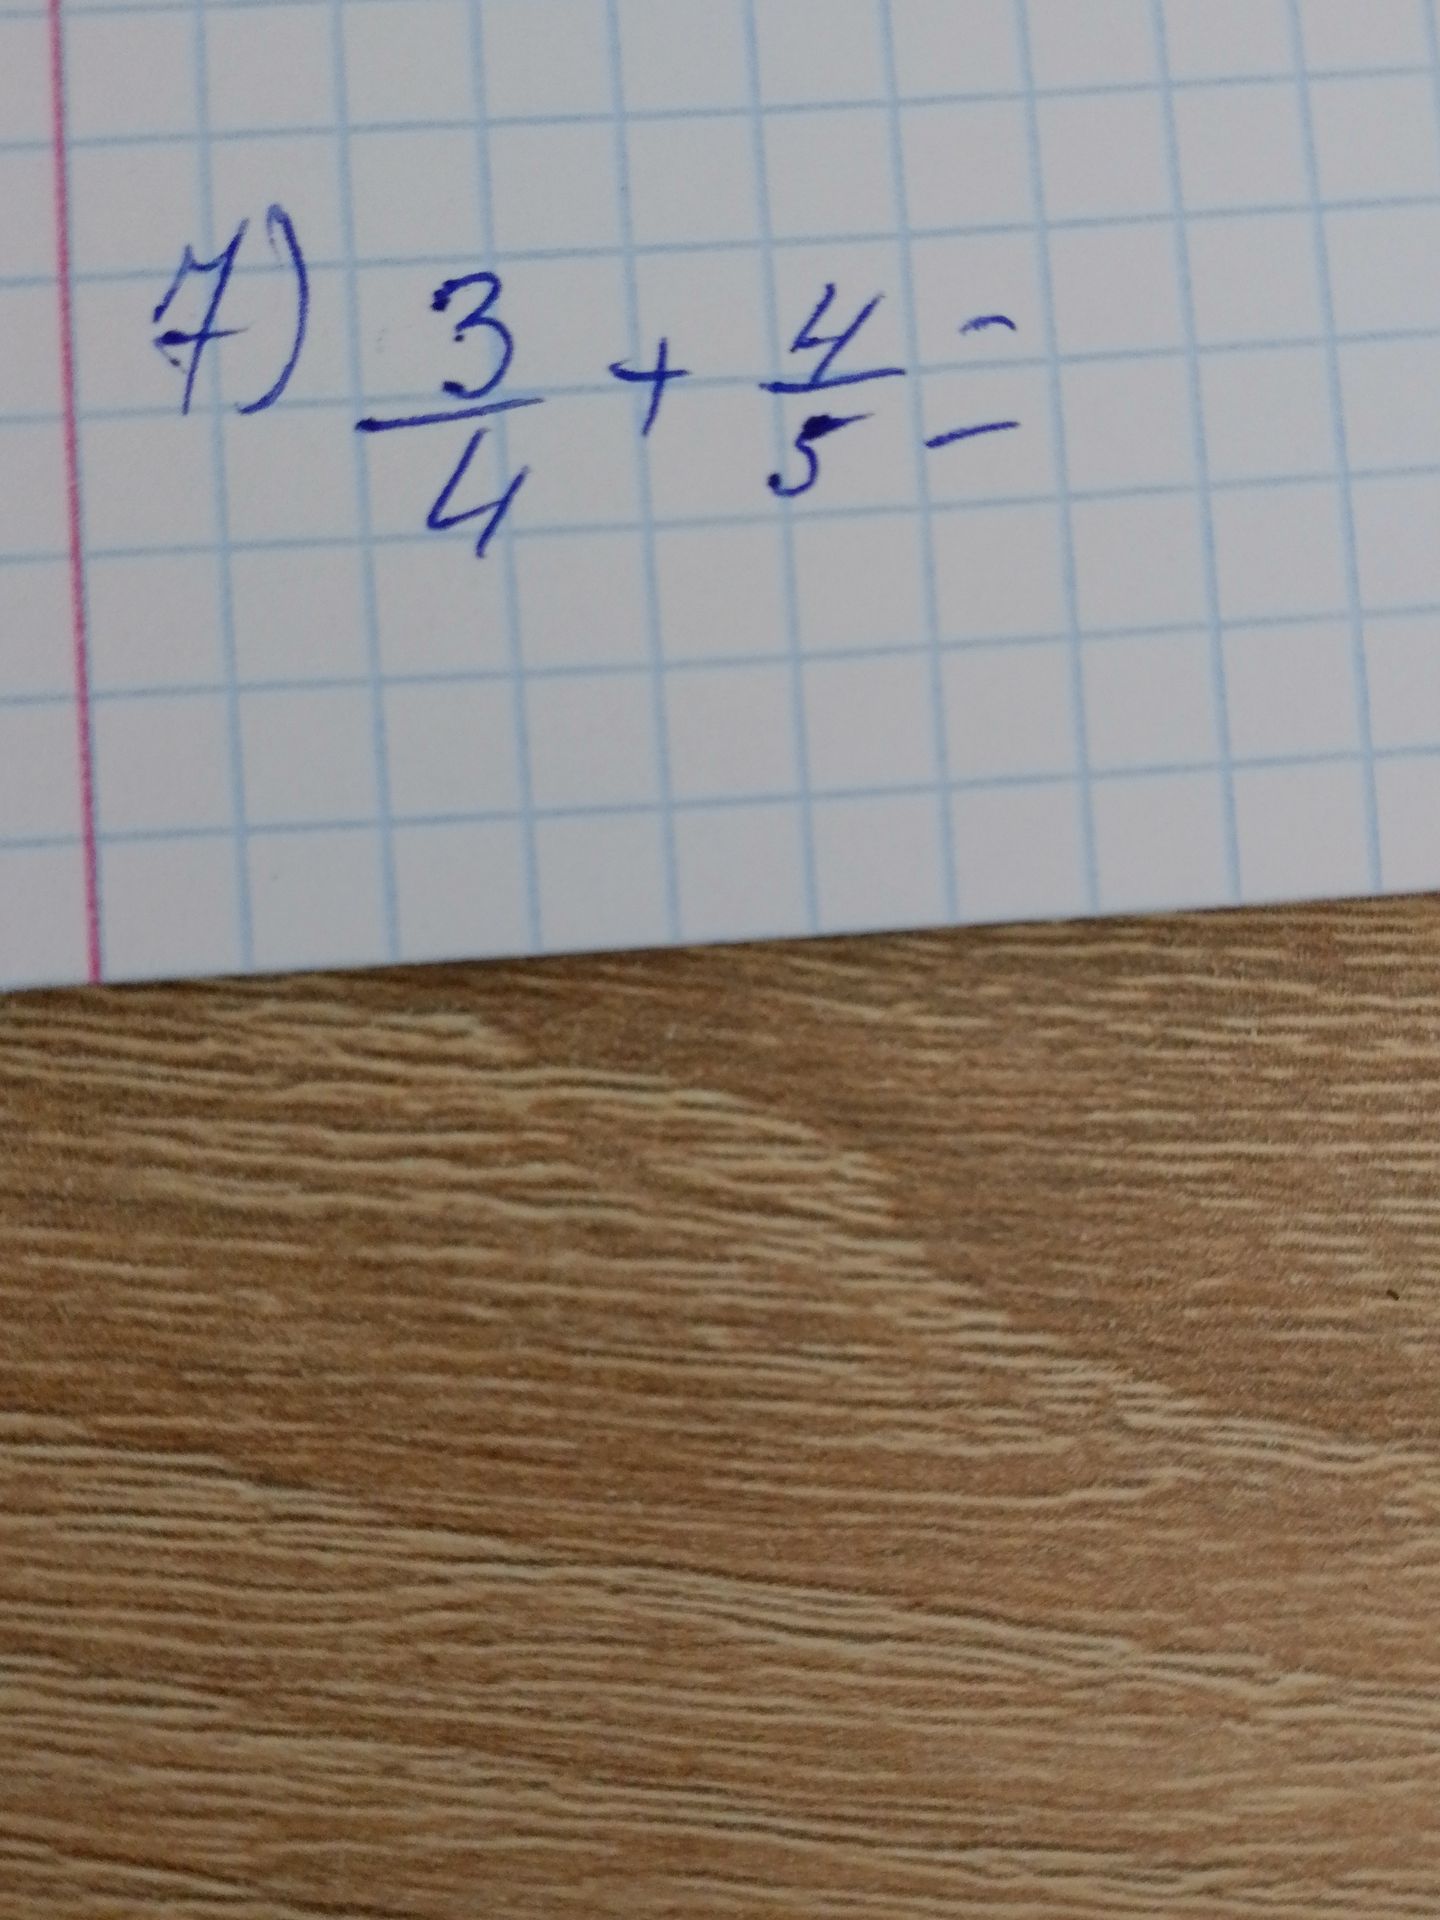 7) 3/4 + 4/5 =